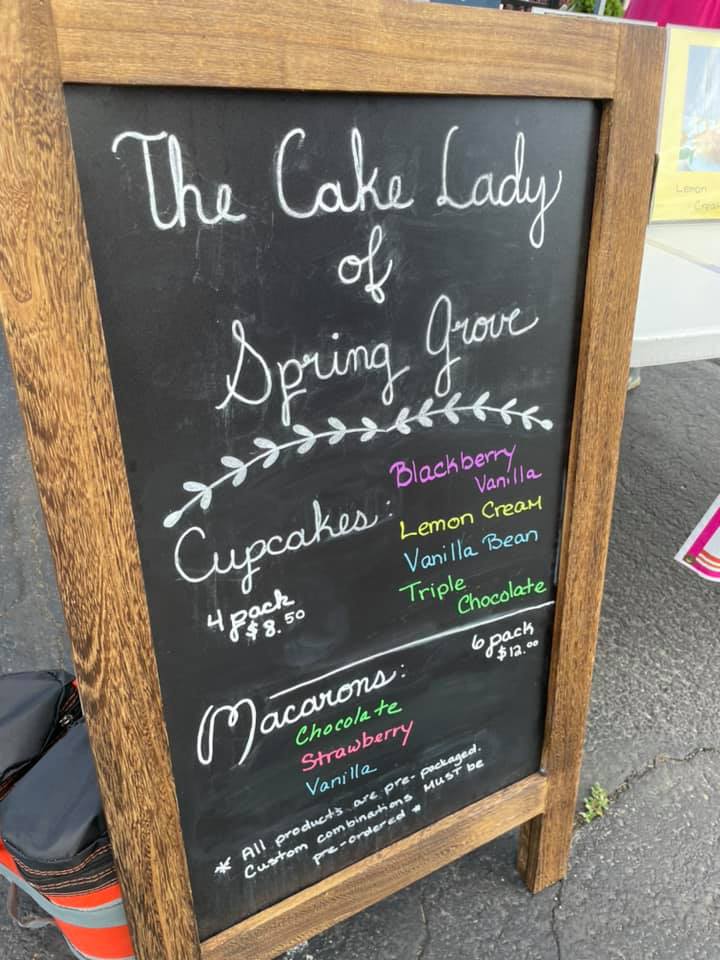 The Cake Lady
of
Spring Grove
Cupcakes:
4 pack
$8.50
Blackberry
Vanilla
Lemon Cream
Vanilla Bean
Triple
Chocolate
Macarons:
6 pack
$12.00
Chocolate
Strawberry
Vanilla
* All products are pre-packaged.
Custom combinations MUST be
pre-ordered *
Lemon